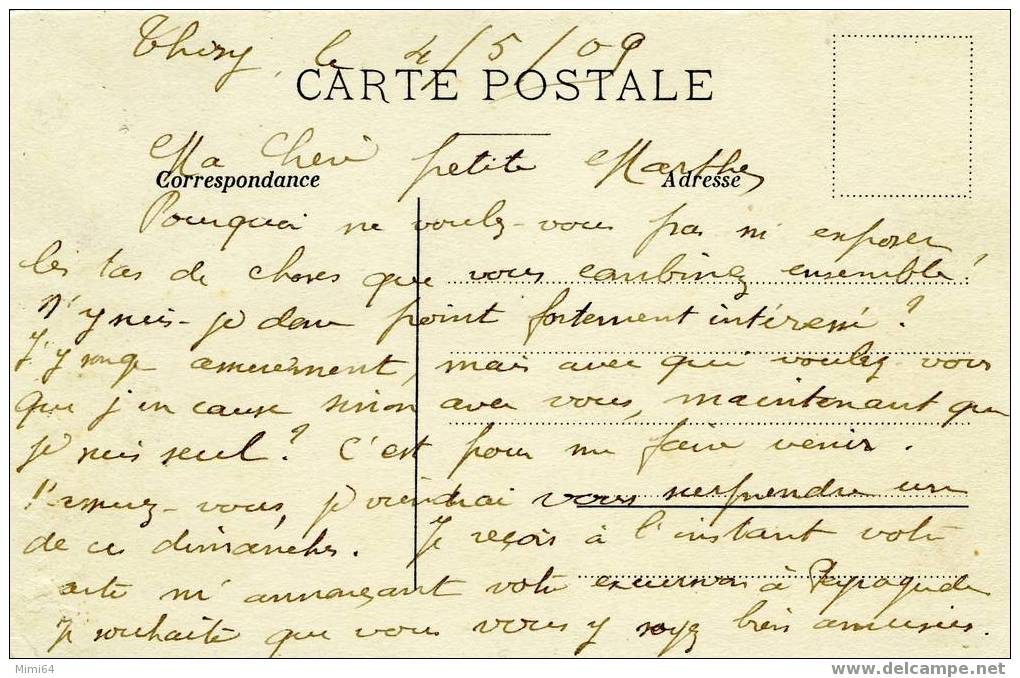 Thizy, le 4/5/09
CARTE POSTALE
Ma Cheri petite Marthe,
Correspondance Adresse
Pourquoi ne voulez-vous pas m' exposer
les tas de choses que vous combinez ensemble!
N'y suis-je donc point fortement intéressé?
J'y songe amèrement, mais avec qui voulez vous
que j'en cause sinon avec vous, maintenant que
je suis seul? C'est pour me faire venir.
vous, je viendrai vous surprendre un
de ces dimanches. Je reçois à l'instant votre
carte m'annonçant votre excursion à
Je souhaite que vous vous y soyez bien amusées.
Mimi64
www.delcampe.net